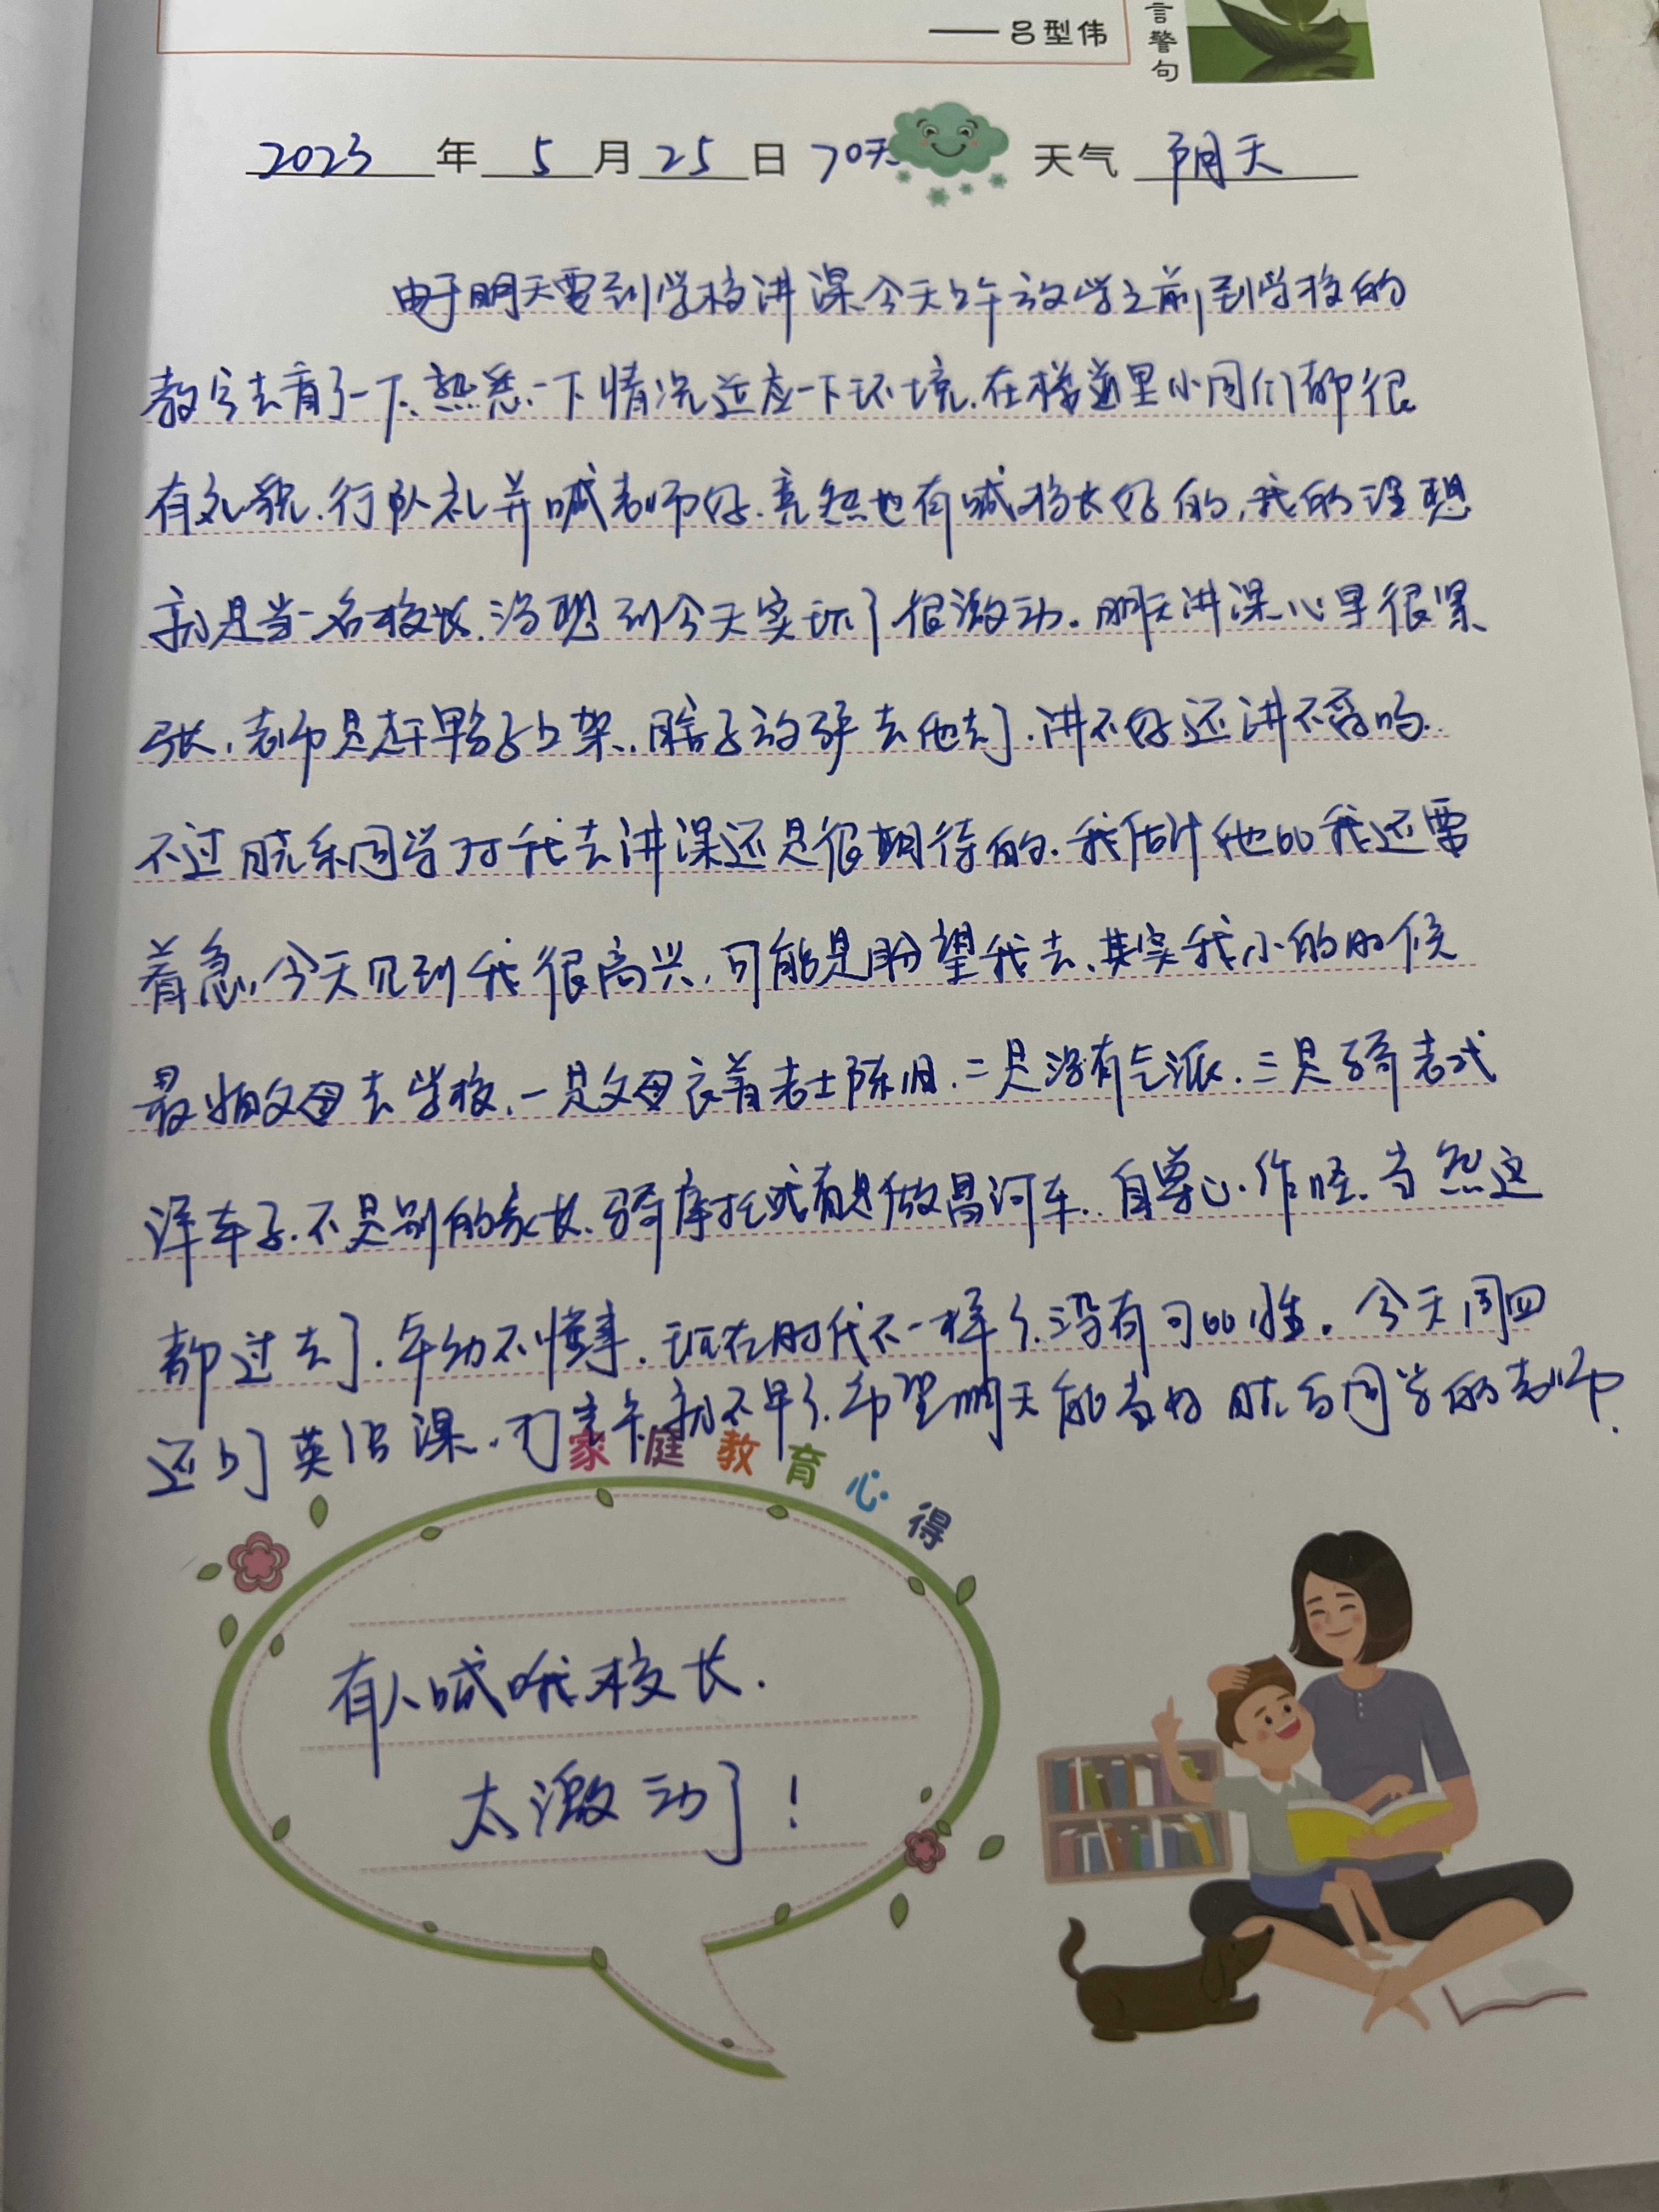 ——吕型伟
言警句
2023年5月25日 70天 天气 阴天
由于明天要到学校讲课今天上午放学之前到学校的
教室去看了一下、熟悉一下情况适应一下环境.在楼道里小同们都很
有礼貌.行队礼并喊老师好.竟然也有喊校长好的,我的理想
就是当一名校长.没想到今天实现了很激动。明天讲课心里很紧
张,老师是赶鸭子上架.瞎子放驴去他去了.讲不好还讲不孬吗.
不过 同学对我去讲课还是很期待的.我估计他比我还要
着急,今天见到我很高兴,可能是盼望我去、其实我小的时候
最怕父母去学校,一是父母衣着老土陈旧.二是没有气派.三是骑老式
洋车子.不是别的家长.骑摩托或者是做昌河车.自尊心.作怪.当然这
都过去了.年幼不懂事.现在时代不一样了.没有可比性。今天周四
还的英语课.打完卡就不早了.希望明天能当好 同学的老师.
家庭教育心得
有人喊哦校长.
太激动了!